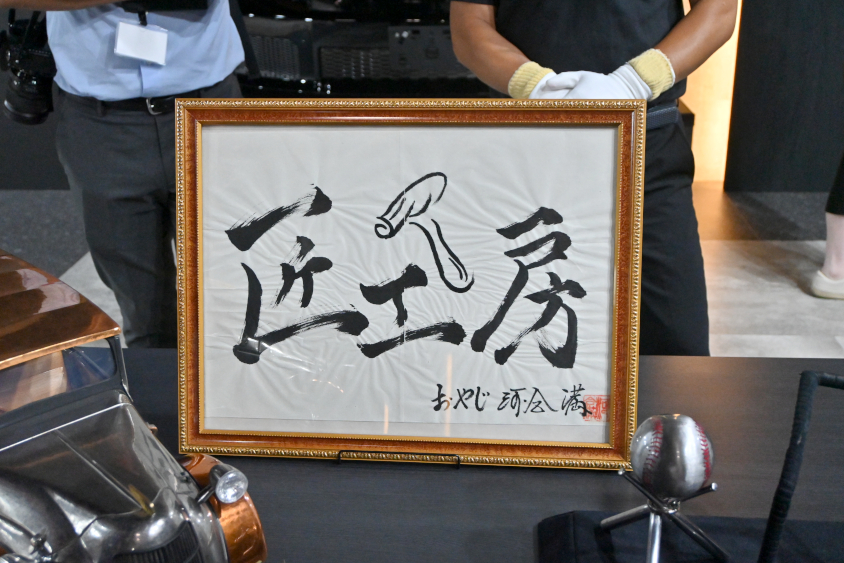 匠工房
おやじ 河合 満